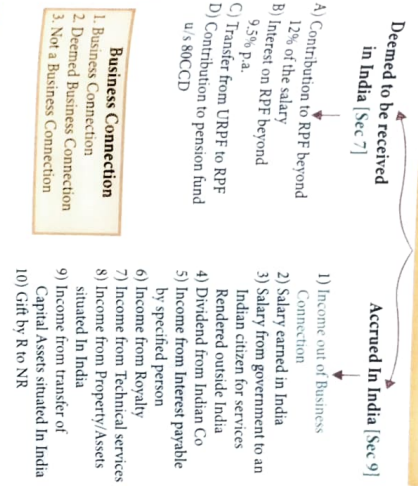 Deemed to be received
in India [Sec 7]
A) Contribution to RPF beyond
12% of the salary
B) Interest on RPF beyond
9.5% p.a.
C) Transfer from URPF to RPF
D) Contribution to pension fund
u/s 80CCD
Business Connection
1. Business Connection
2. Deemed Business Connection
3. Not a Business Connection
Accrued In India [Sec 9]
1) Income out of Business
Connection
2) Salary earned in India
3) Salary from government to an
Indian citizen for services
Rendered outside India
4) Dividend from Indian Co
5) Income from Interest payable
by specified person
6) Income from Royalty
7) Income from Technical services
8) Income from Property/Assets
situated In India
9) Income from transfer of
Capital Assets situated In India
10) Gift by R to NR